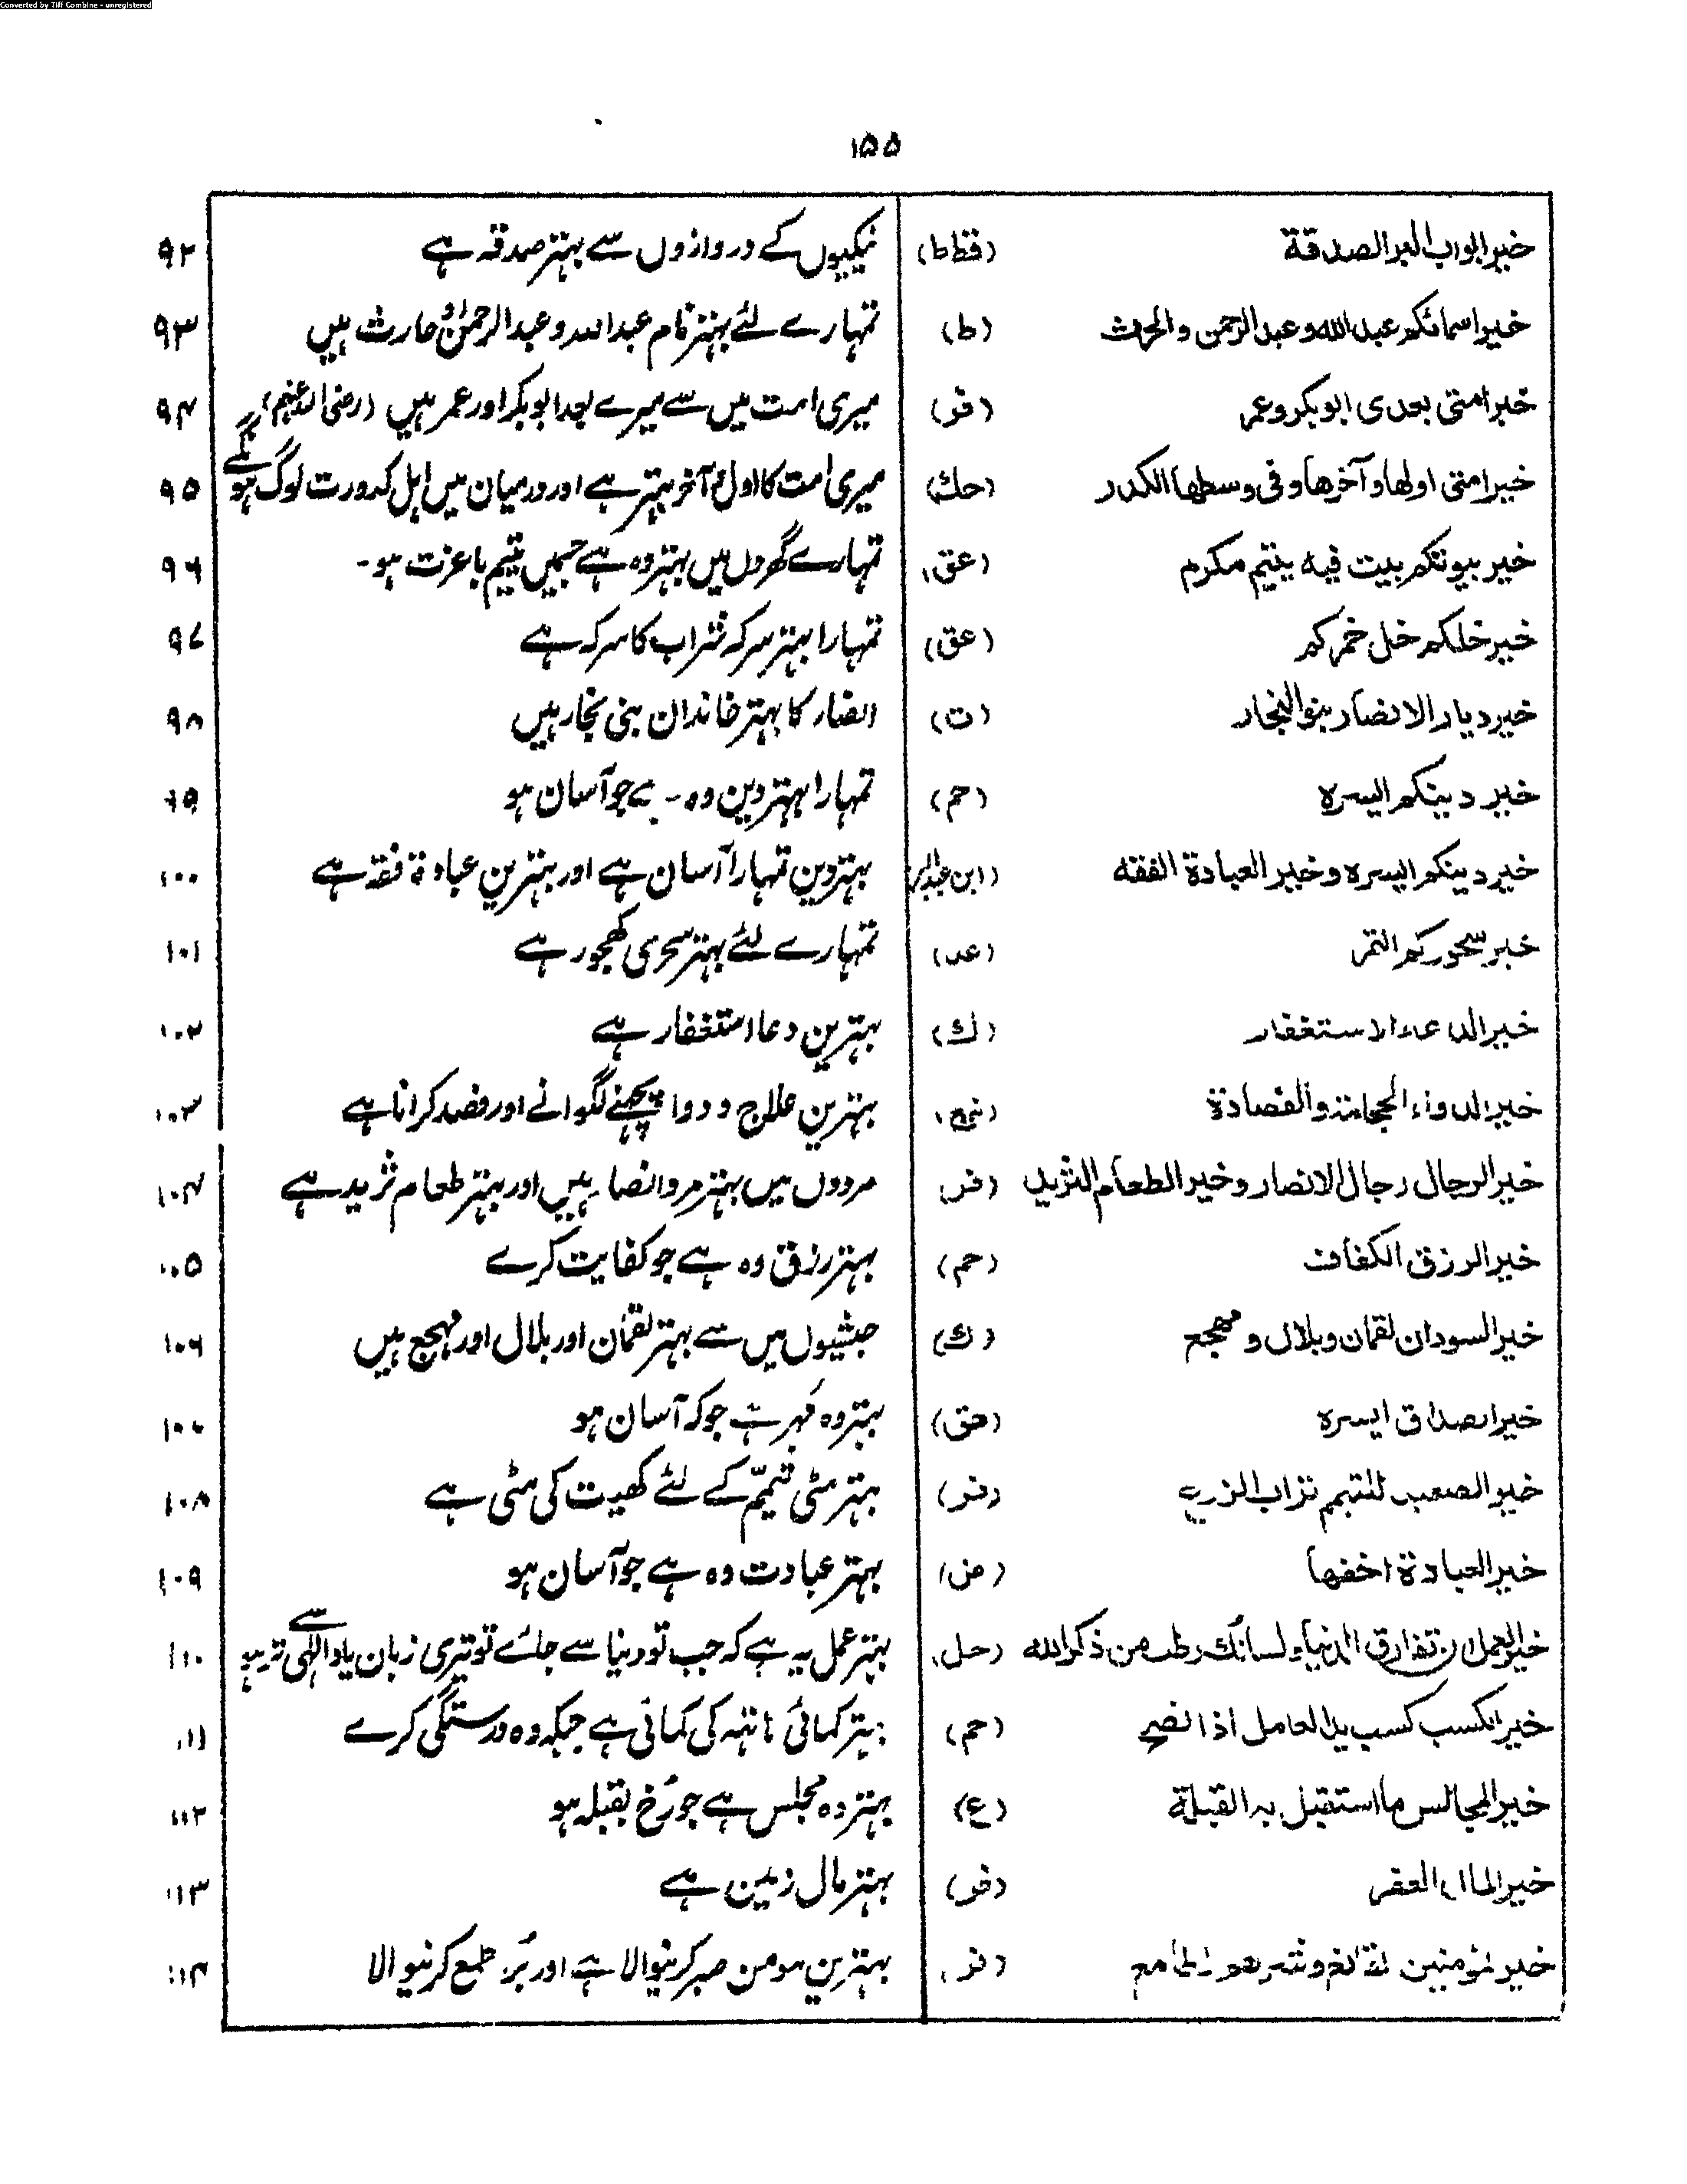 Converted by Tiff Combine - unregistered
۱۵۵
خیر ابواب البر الصدقة (قطط) نیکیوں کے دروازوں سے بہتر صدقہ ہے ۹۲
خیر اسمائکم عبد الله و عبد الرحمن والحرث (ط) تمہارے لئے بہتر نام عبد اللہ و عبد الرحمٰن و حارث ہیں ۹۳
خیر امتی بعدی ابو بکر و عمر (فر) میری امت میں سے میرے بعد ابو بکر اور عمر ہیں (رضی اللہ عنہم) ۹۴
خیر امتی اولها و آخرها و فی وسطها الکدر (حك) میری امت کا اول و آخر بہتر ہے اور درمیان میں اہل کدورت لوگ ہونگے ۹۵
خیر بیوتکم بیت فیه یتیم مکرم (عق) تمہارے گھروں میں بہتر وہ ہے جسمیں یتیم باعزت ہو۔ ۹۶
خیر خلکم خل خمرکم (عق) تمہارا بہتر سرکہ شراب کا سرکہ ہے ۹۷
خیر دیار الانصار بنو النجار (ت) انصار کا بہتر خاندان بنی نجار ہیں ۹۸
خیر دینکم الیسره (حم) تمہارا بہتر دین وہ ہے جو آسان ہو ۹۹
خیر دینکم الیسره و خیر العبادة الفقه (ابن عبد البر) بہتر دین تمہارا آسان ہے اور بہترین عبادۃ فقہ ہے ۱۰۰
خیر سحورکم التمر (عد) تمہارے لئے بہتر سحری کھجور ہے ۱۰۱
خیر الدعاء الاستغفار (ك) بہترین دعا استغفار ہے ۱۰۲
خیر الدواء الحجامة والفصادة بہترین علاج و دوا پچھنے لگوانے اور فصد کرانا ہے ۱۰۳
خیر الرجال رجال الانصار و خیر الطعام الثرید (فر) مردوں میں بہتر مرد انصار ہیں اور بہتر طعام ثرید ہے ۱۰۴
خیر الرزق الکفاف (حم) بہتر رزق وہ ہے جو کفایت کرے ۱۰۵
خیر السودان لقمان و بلال و مهجع (ك) حبشیوں میں سے بہتر لقمان اور بلال اور مہجع ہیں ۱۰۶
خیر الصداق ایسره (حق) بہتر وہ مَہر ہے جو کہ آسان ہو ۱۰۷
خیر الصعید للتیمم تراب الزرع (فر) بہتر مٹی تیمّم کے لئے کھیت کی مٹی ہے ۱۰۸
خیر العبادة اخفها (ض) بہتر عبادت وہ ہے جو آسان ہو ۱۰۹
خیر العمل ان تفارق الدنیا و لسانك رطب من ذکر الله (حل) بہتر عمل یہ ہے کہ جب تو دنیا سے جائے تو تیری زبان یاد الٰہی سے تر ہو ۱۱۰
خیر الکسب کسب ید العامل اذا نصح (حم) بہتر کمائی ہاتھ کی کمائی ہے جبکہ وہ درستگی کرے ۱۱۱
خیر المجالس ما استقبل به القبلة (ع) بہتر وہ مجلس ہے جو رُخ بقبلہ ہو ۱۱۲
خیر المال العقر (فر) بہتر مال زمین ہے ۱۱۳
خیر المؤمنین و شرهم الطامع (فر) بہترین مومن صبر کرنیوالا ہے اور بُرا طمع کرنیوالا ۱۱۴